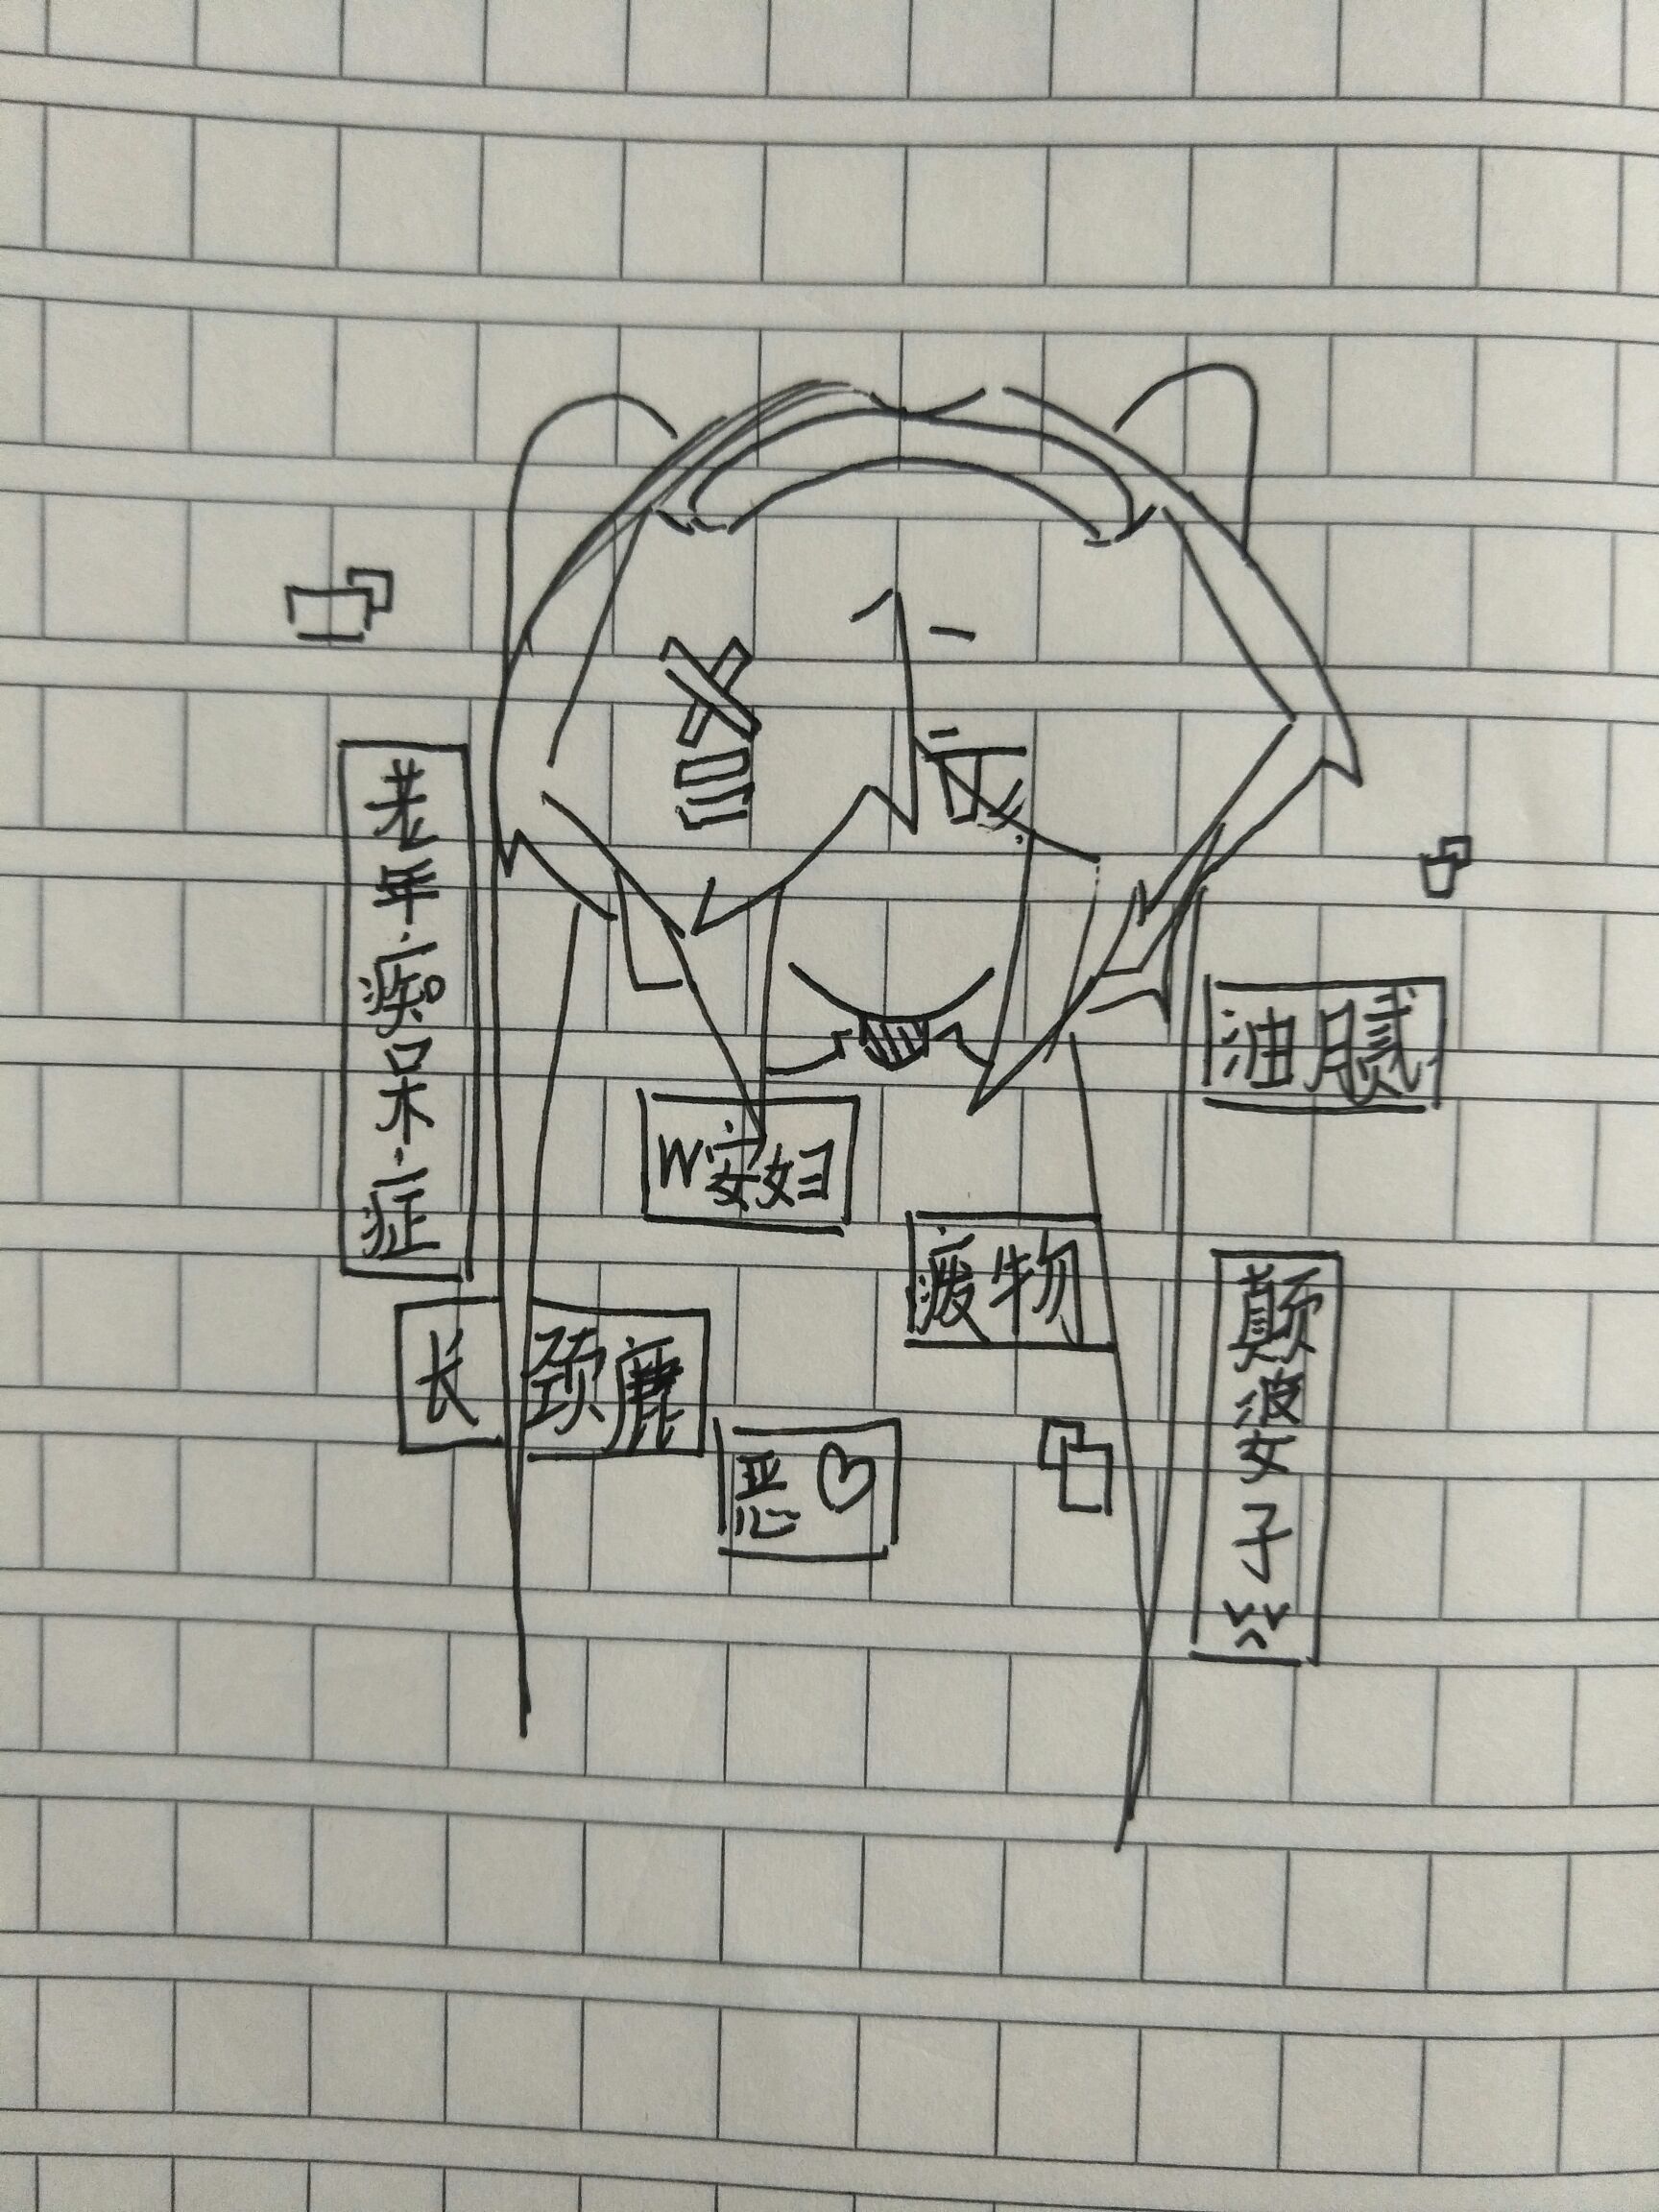 老年痴呆症
油腻
W安妇
废物
颠婆女子
长颈鹿
恶♡